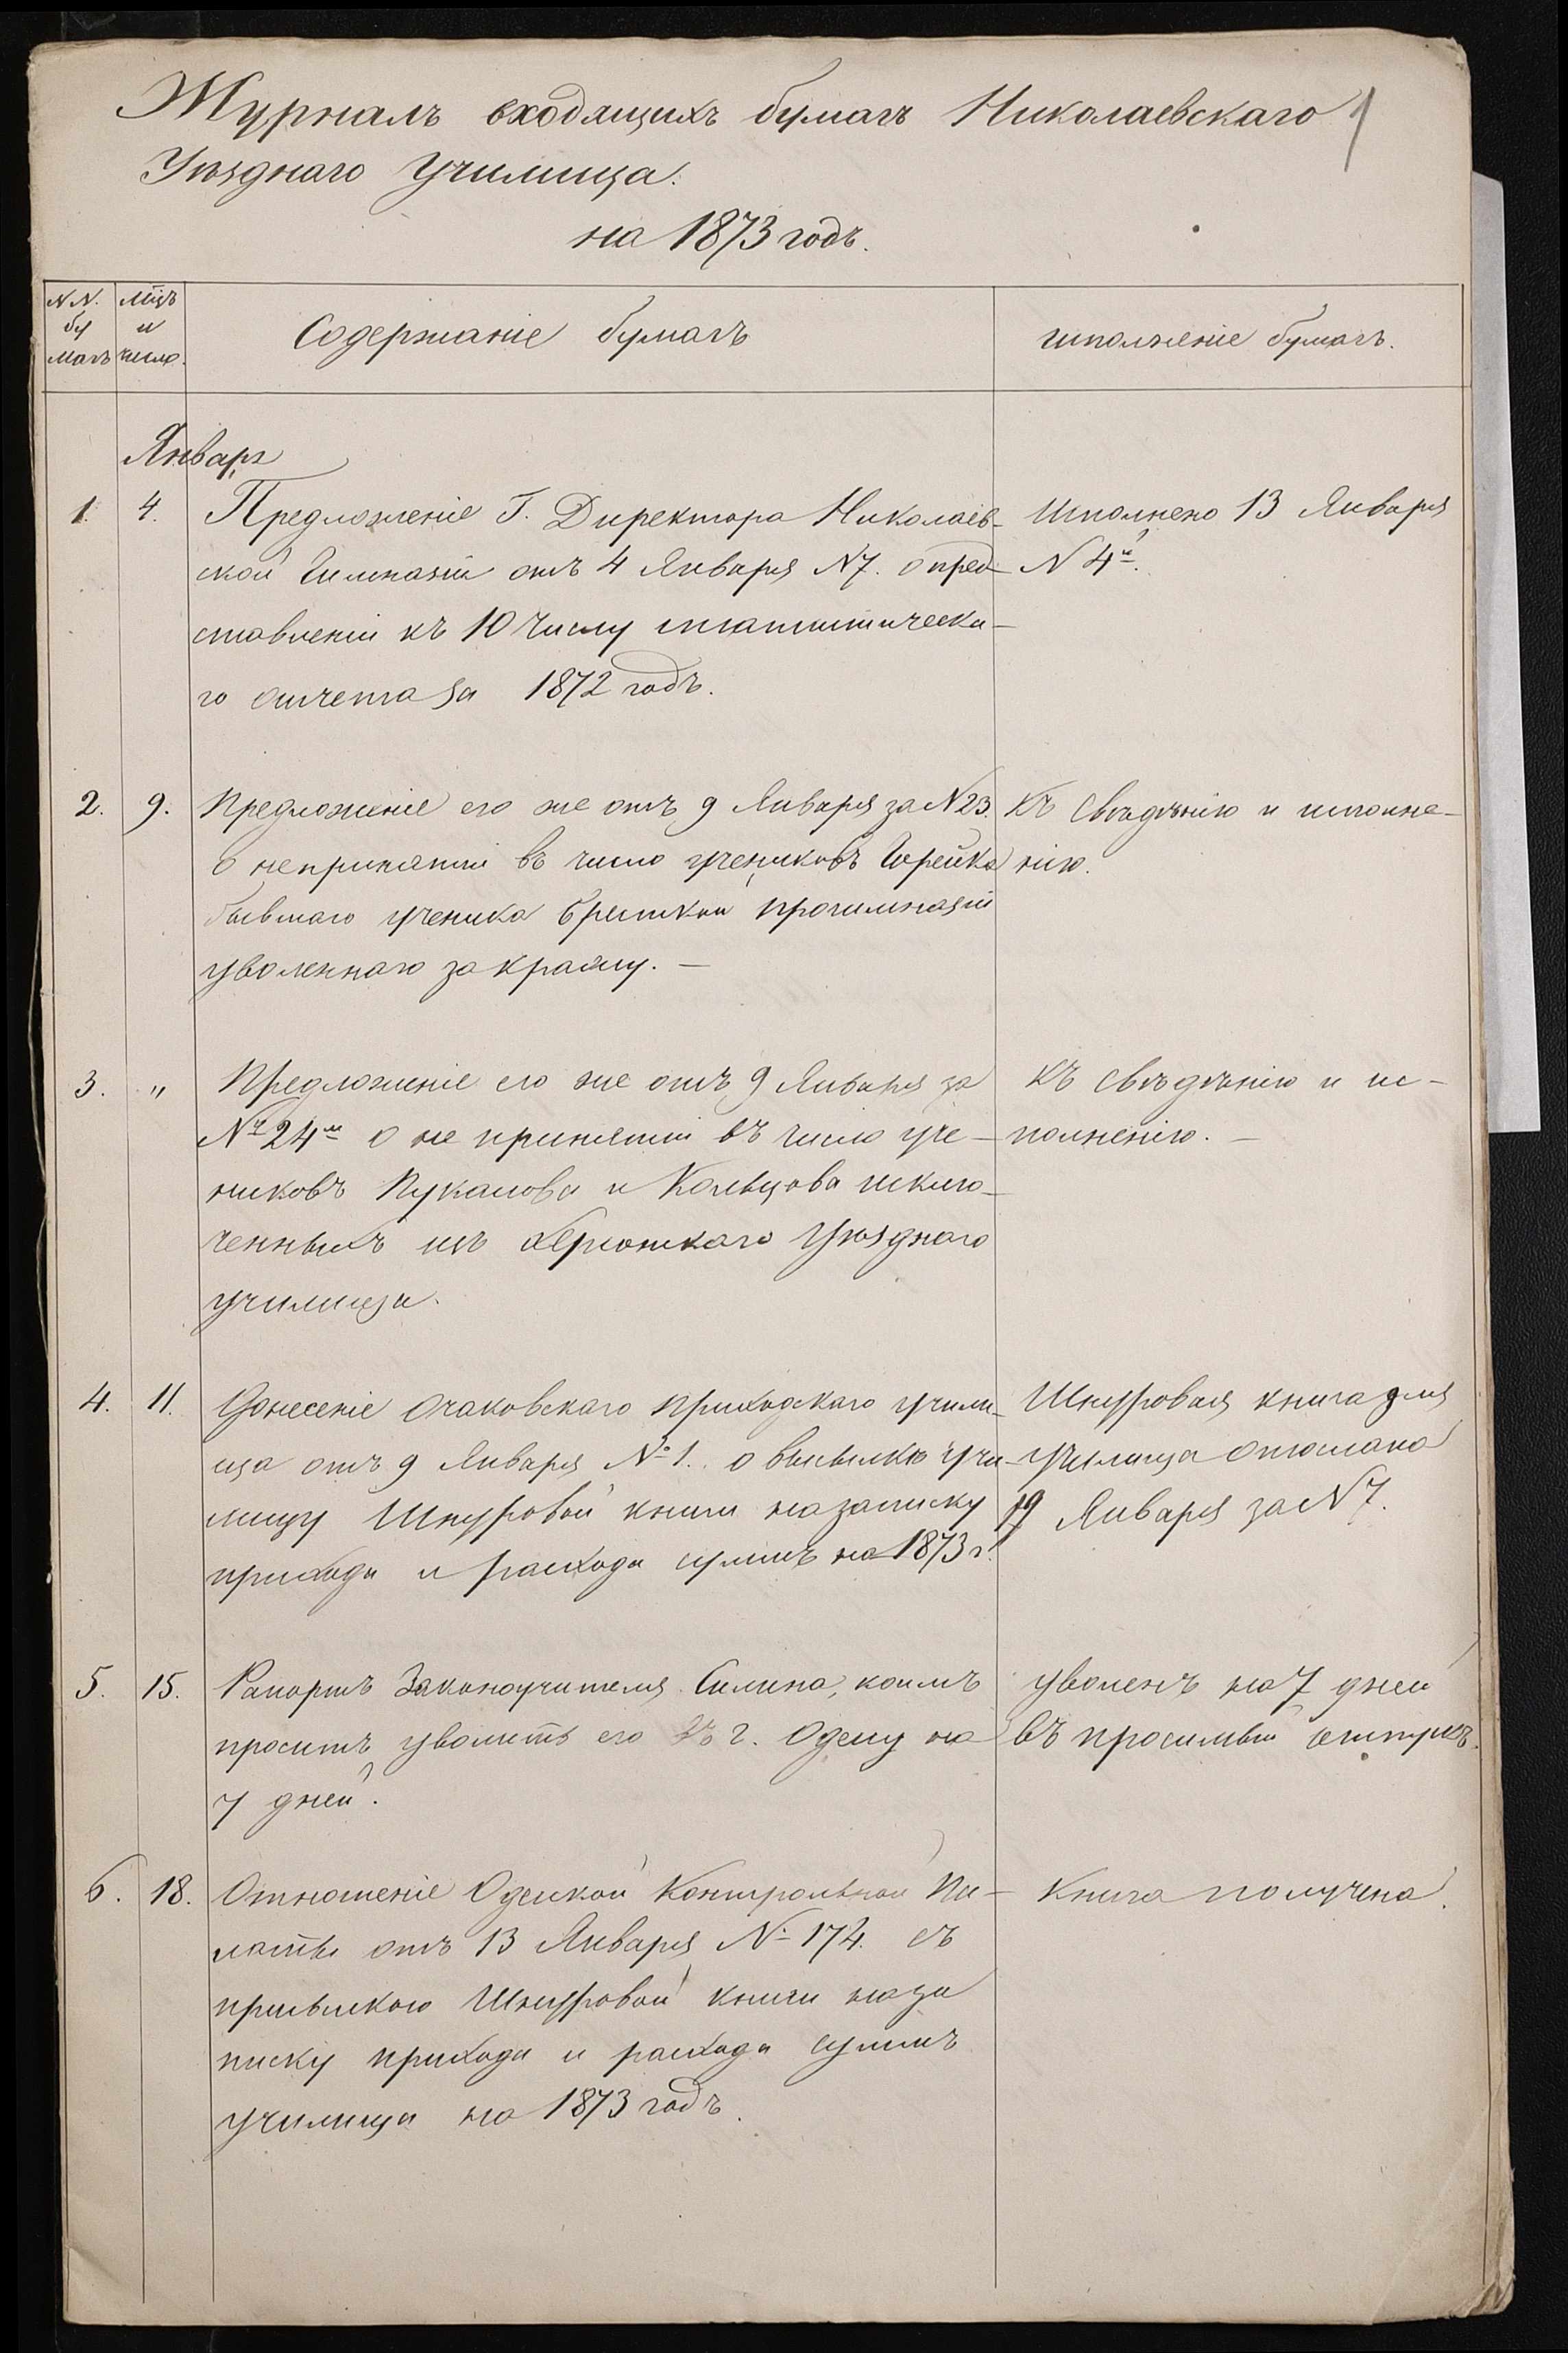 Журналъ входящихъ бумагъ Николаевскаго
1
Уѣзднаго Училища.
на 1873 годъ.
NN. бумагъ
Мцъ и число.
Содержаніе бумагъ
исполненіе бумагъ.
Январь
1. 4. Предложеніе Г. Директора Николаев-
ской Гимназіи отъ 4 Января N7. о пред-
ставленіи къ 10 числу статистическа-
го отчета за 1872 годъ.
Исполнено 13 Января
N 4м.
2. 9. Предложеніе его же отъ 9 Января за N23.
о непринятіи въ число учениковъ
бывшаго ученика прогимназіи
уволеннаго за кражу. —
Къ свѣдѣнію и исполне-
нію.
3. " Предложеніе его же отъ 9 Января за
№ 24м о не принятіи въ число уче-
никовъ Пукалова и Кольцова исклю-
ченныхъ изъ Херсонскаго Уѣзднаго
училища.
Къ свѣдѣнію и ис-
полненію. —
4. 11. Донесеніе Очаковскаго приходскаго учили-
ща отъ 9 Января № 1. о высылкѣ учи-
лищу Шнуровой книги на записку
прихода и расхода суммъ на 1873 г.
Шнуровая книга для
училища отослана
19 Января за N 7.
5. 15. Рапортъ Законоучителя Силина, коимъ
проситъ уволить его въ г. Одессу на
7 дней.
уволенъ на 7 дней
въ просимый отпускъ.
6. 18. Отношеніе Одесской Контрольной Па-
латы отъ 13 Января № 174. съ
присылкою Шнуровой книги на за
писку прихода и расхода суммъ
училища на 1873 годъ.
Книга получена.